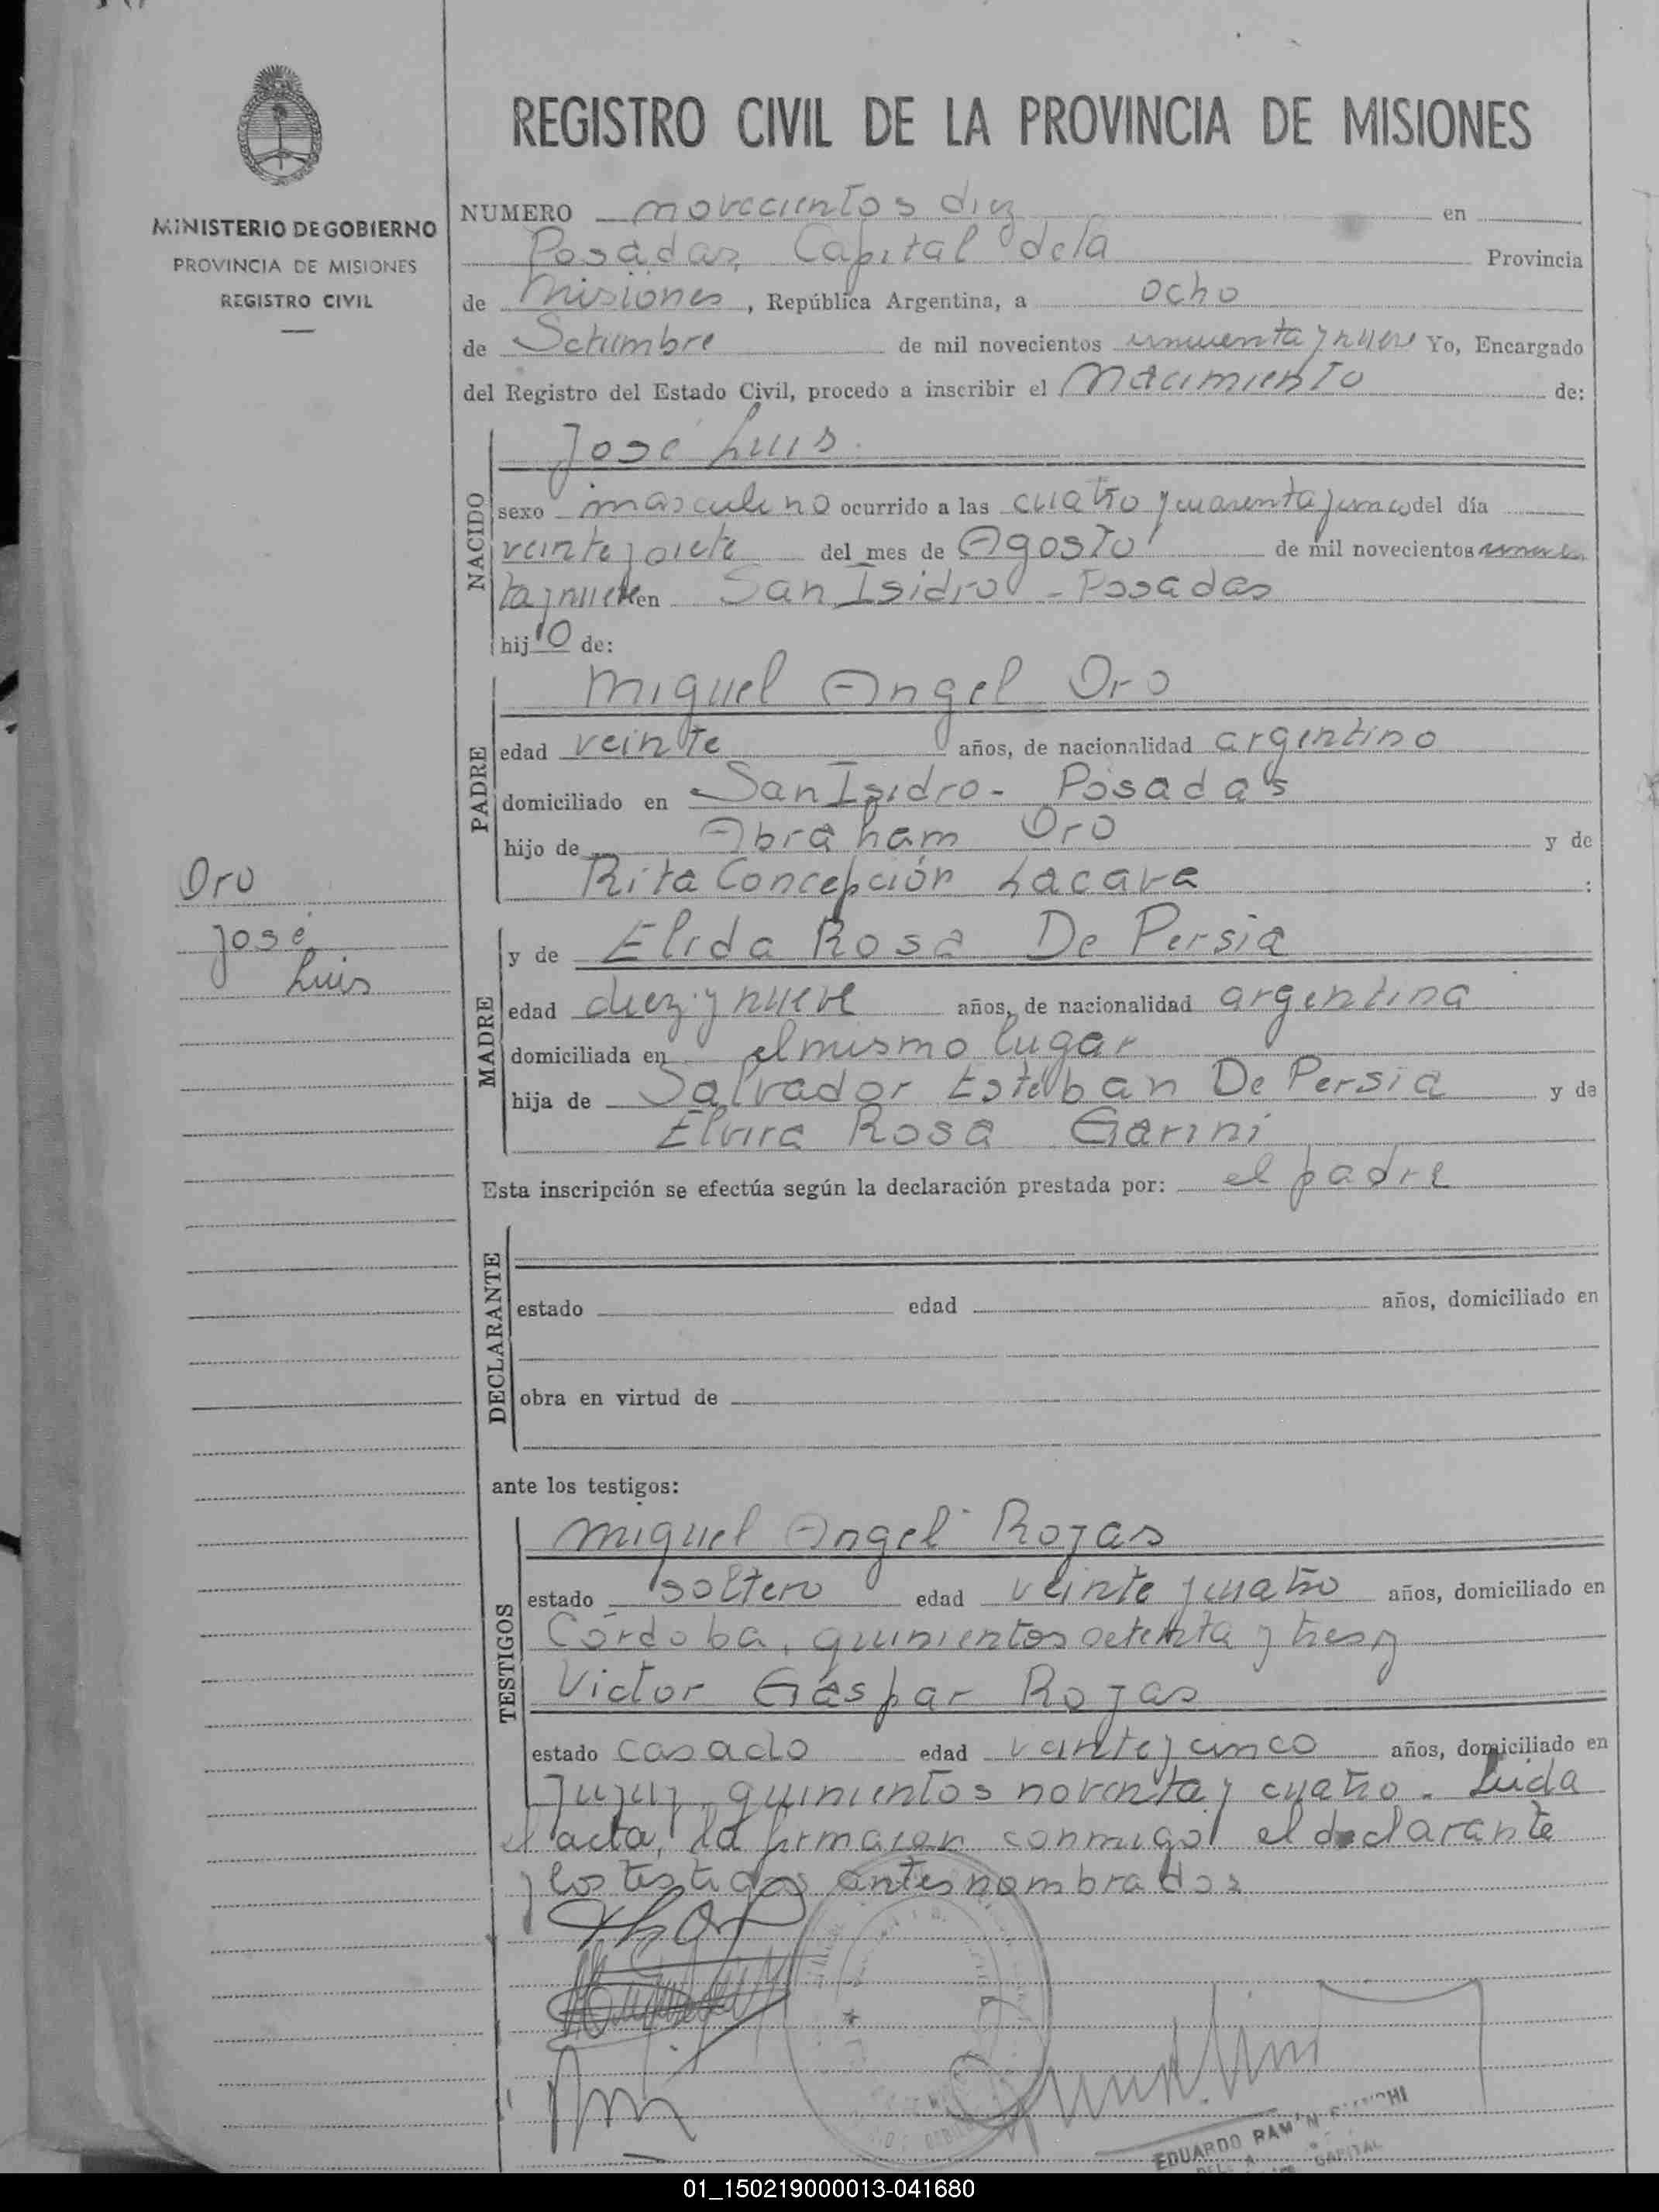 REGISTRO CIVIL DE LA PROVINCIA DE MISIONES
MINISTERIO DE GOBIERNO
PROVINCIA DE MISIONES
REGISTRO CIVIL
NUMERO novecientos diez en
Posadas, Capital de la Provincia
de Misiones, República Argentina, a ocho
de Setiembre de mil novecientos cincuenta y nueve Yo, Encargado
del Registro del Estado Civil, procedo a inscribir el Nacimiento de:
NACIDO
José Luis
sexo masculino ocurrido a las cuatro y cuarenta y cinco del día
veinte y siete del mes de Agosto de mil novecientos cincuen
ta y nueve en San Isidro - Posadas
hijo de:
PADRE
Miguel Angel Oro
edad veinte años, de nacionalidad argentino
domiciliado en San Isidro - Posadas
hijo de Abraham Oro y de
Rita Concepción Lacava :
Oro
José
Luis
MADRE
y de Elida Rosa De Persia
edad diez y nueve años, de nacionalidad argentina
domiciliada en el mismo lugar
hija de Salvador Esteban De Persia y de
Elvira Rosa Garini
Esta inscripción se efectúa según la declaración prestada por: el padre
DECLARANTE
estado edad años, domiciliado en
obra en virtud de
ante los testigos:
TESTIGOS
Miguel Angel Rojas
estado soltero edad veinte y cuatro años, domiciliado en
Córdoba, quinientos setenta y tres y
Victor Gaspar Rojas
estado casado edad veinte y cinco años, domiciliado en
Jujuy, quinientos noventa y cuatro. Leida
el acta, la firmaron conmigo el declarante
y los testigos antes nombrados
EDUARDO RAMON
CAPITAL
01_150219000013-041680